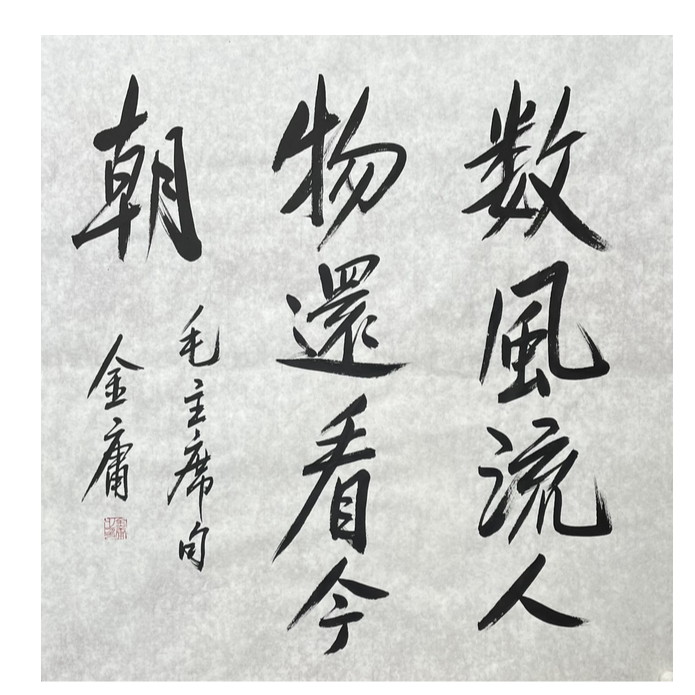 数風流人
物還看今
朝
毛主席句
金庸